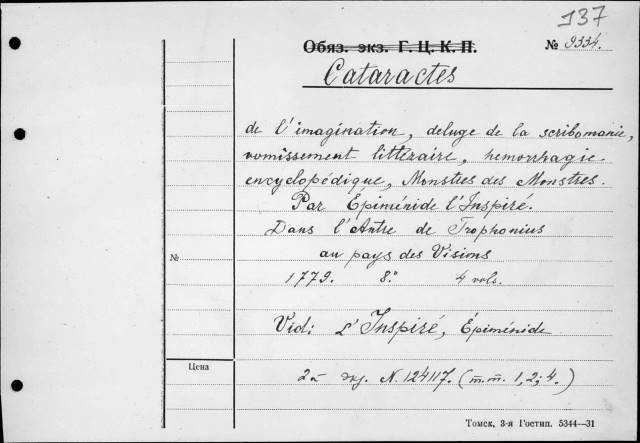 137
Обяз. экз. Г. Ц. К. П.
№ 9334.
Cataractes
de l'imagination, deluge de la scribomanie,
vomissement litteraire, hemorrhagie
encyclopédique, Monstres des Monstres.
Par Épiménide l'Inspiré.
Dans l'Antre de Trophonius
au pays des Visions
№
1779. 8.° 4 vols.
Vid: L'Inspiré, Épiménide
Цена
2й экз. N. 124117. (т.т. 1, 2; 4.)
Томск, 3-я Гостип. 5344—31